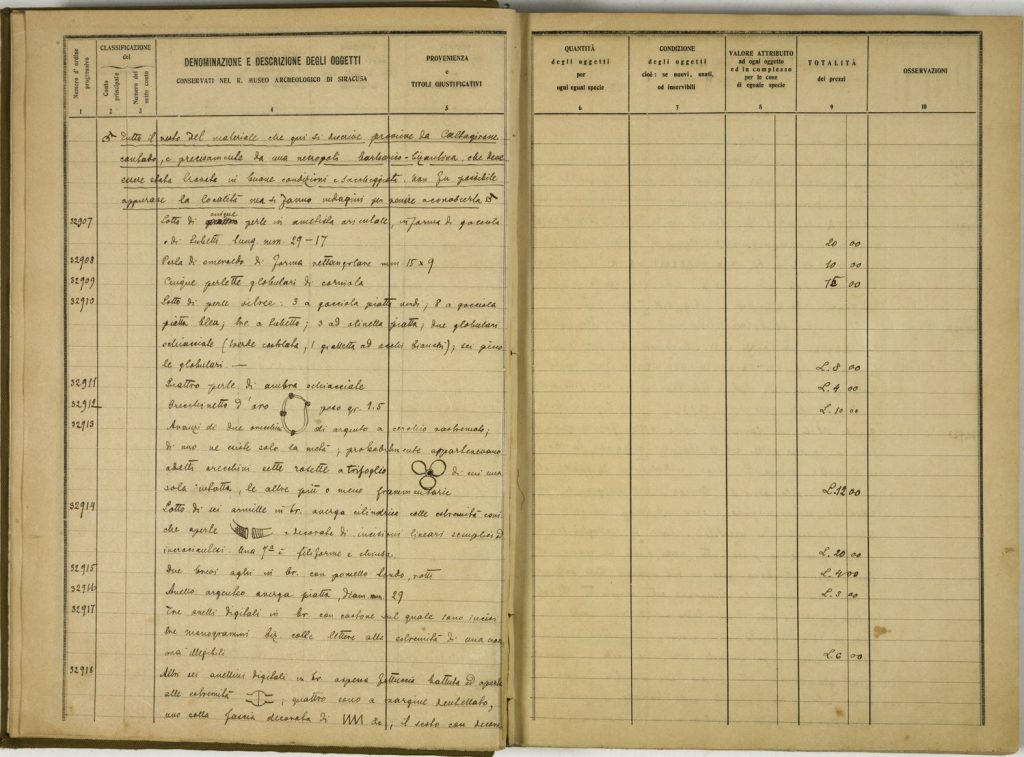 Numero d'ordine progressivo
CLASSIFICAZIONE del
Conto principale
Numero del sotto conto
DENOMINAZIONE E DESCRIZIONE DEGLI OGGETTI
CONSERVATI NEL R. MUSEO ARCHEOLOGICO DI SIRACUSA
PROVENIENZA
e
TITOLI GIUSTIFICATIVI
1 2 3 4 5
Tutto il resto del materiale che qui si descrive proviene da Caltagirone
contado, e precisamente da una necropoli barbarico-bizantina, che deve
essere stata trovata in buone condizioni e saccheggiata. Non fu possibile
appurare la località ma si fanno indagini per venire a conoscerla
32907 Lotto di cinque perle in ametista orientale, in forma di gocciola
e di tubetti lung. mm. 29-17
32908 Perla di smeraldo di forma rettangolare mm. 15 x 9
32909 Cinque perlette globulari di corniola
32910 Lotto di perle vitree: 3 a gocciola piatta verdi; 8 a gocciola
piatta bleu; tre a tubetto; 3 ad olivella piatta; due globulari
schiacciate (1 verde costolata, 1 gialletta ad occhi bianchi); sei picco
le globulari. —
32911 Quattro perle di ambra schiacciate
32912 Orecchinetto d'oro peso gr. 1.5
32913 Avanzi di due orecchini di argento a cerchio rastremato;
di uno ne esiste solo la metà; probabilmente appartenevano
a detti orecchini sette rosette a trifoglio di cui una
sola intatta, le altre più o meno frammentarie
32914 Lotto di sei armille in br. a verga cilindrica colle estremità coni
che aperte e decorate di incisioni lineari semplici ed
incrociantesi. Una 7a è filiforme e chiusa.
32915 Due crossi aghi in br. con pometto tondo, rotti
32916 Anello argenteo a verga piatta, diam. mm. 29
32917 Tre anelli digitali in br. con castone sul quale sono incisi
tre monogrammi biz. colle lettere alle estremità di una croce
ma illegibili
32918 Altri sei anellini digitali in br. a spessa fettuccia battuta ed aperta
alle estremità ; quattro sono a margine dentellato,
uno colla fascia decorata di ; il sesto con decora
QUANTITÀ
degli oggetti
per
ogni egual specie
CONDIZIONE
degli oggetti
cioè: se nuovi, usati,
od inservibili
VALORE ATTRIBUITO
ad ogni oggetto
ed in complesso
per le cose
di eguale specie
TOTALITÀ
dei prezzi
OSSERVAZIONI
6 7 8 9 10
20 00
10 00
15 00
L. 8 00
L. 4 00
L. 10 00
L. 12 00
L. 20 00
L. 4 00
L. 3 00
L. 6 00